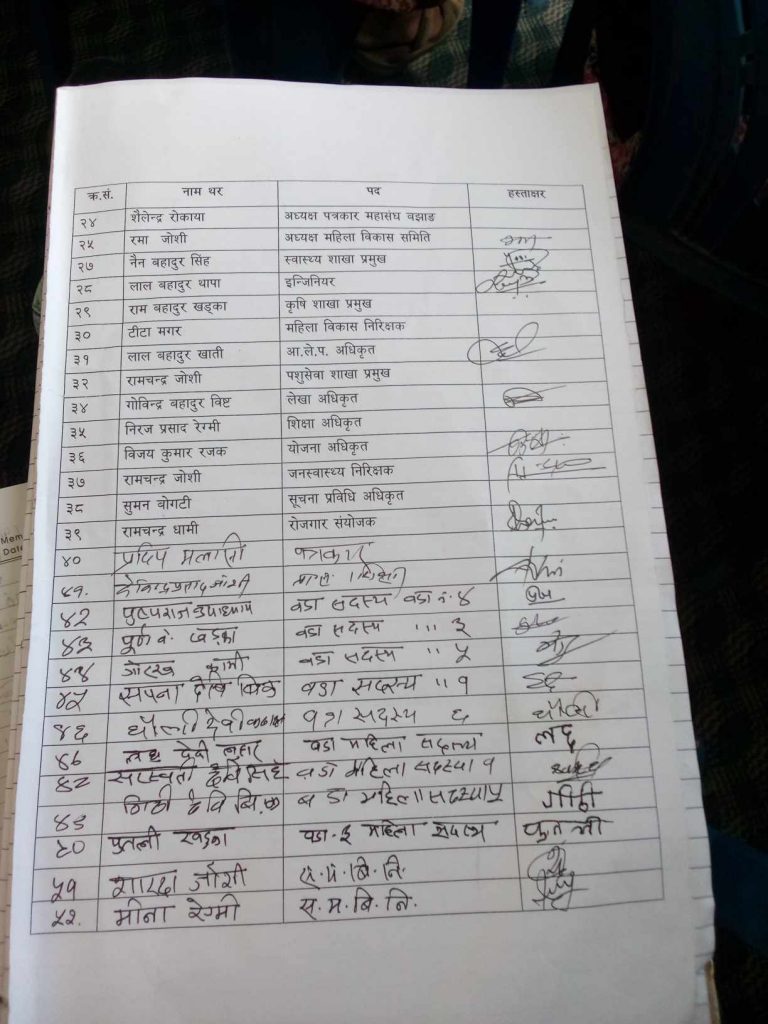 क्र.सं. नाम थर पद हस्ताक्षर
२४ शैलेन्द्र रोकाया अध्यक्ष पत्रकार महासंघ बझाङ
२५ रमा जोशी अध्यक्ष महिला विकास समिति
२७ नैन बहादुर सिंह स्वास्थ्य शाखा प्रमुख
२८ लाल बहादुर थापा इन्जिनियर
२९ राम बहादुर खड्का कृषि शाखा प्रमुख
३० टीटा मगर महिला विकास निरिक्षक
३१ लाल बहादुर खाती आ.ले.प. अधिकृत
३२ रामचन्द्र जोशी पशुसेवा शाखा प्रमुख
३४ गोविन्द्र बहादुर विष्ट लेखा अधिकृत
३५ निरज प्रसाद रेग्मी शिक्षा अधिकृत
३६ विजय कुमार रजक योजना अधिकृत
३७ रामचन्द्र जोशी जनस्वास्थ्य निरिक्षक
३८ सुमन वोगटी सूचना प्रविधि अधिकृत
३९ रामचन्द्र धामी रोजगार संयोजक
४० प्रदिप पत्रकार
४१.
४२ पुष्पराज उपाध्याय वडा सदस्य वडा नं. ४
४३ पूर्ण ब. खड्का वडा सदस्य ,,, ३
४४ कामी वडा सदस्य ,, ५
४५ सपना देवि बिक वडा सदस्य ,, १
४६ धौली देवी सदस्य ६ धौली
४७ देवी लुहार वडा महिला सदस्य
४८ सरस्वती देवि सिंह वडा महिला सदस्य १
४९ देवि बि.क वडा महिला सदस्य ५
५० पुतली खड्का वडा-३ महिला सदस्य पुतली
५१ शारदा जोशी स.म.बि.नि.
५२. मीना रेग्मी स.म.बि.नि.